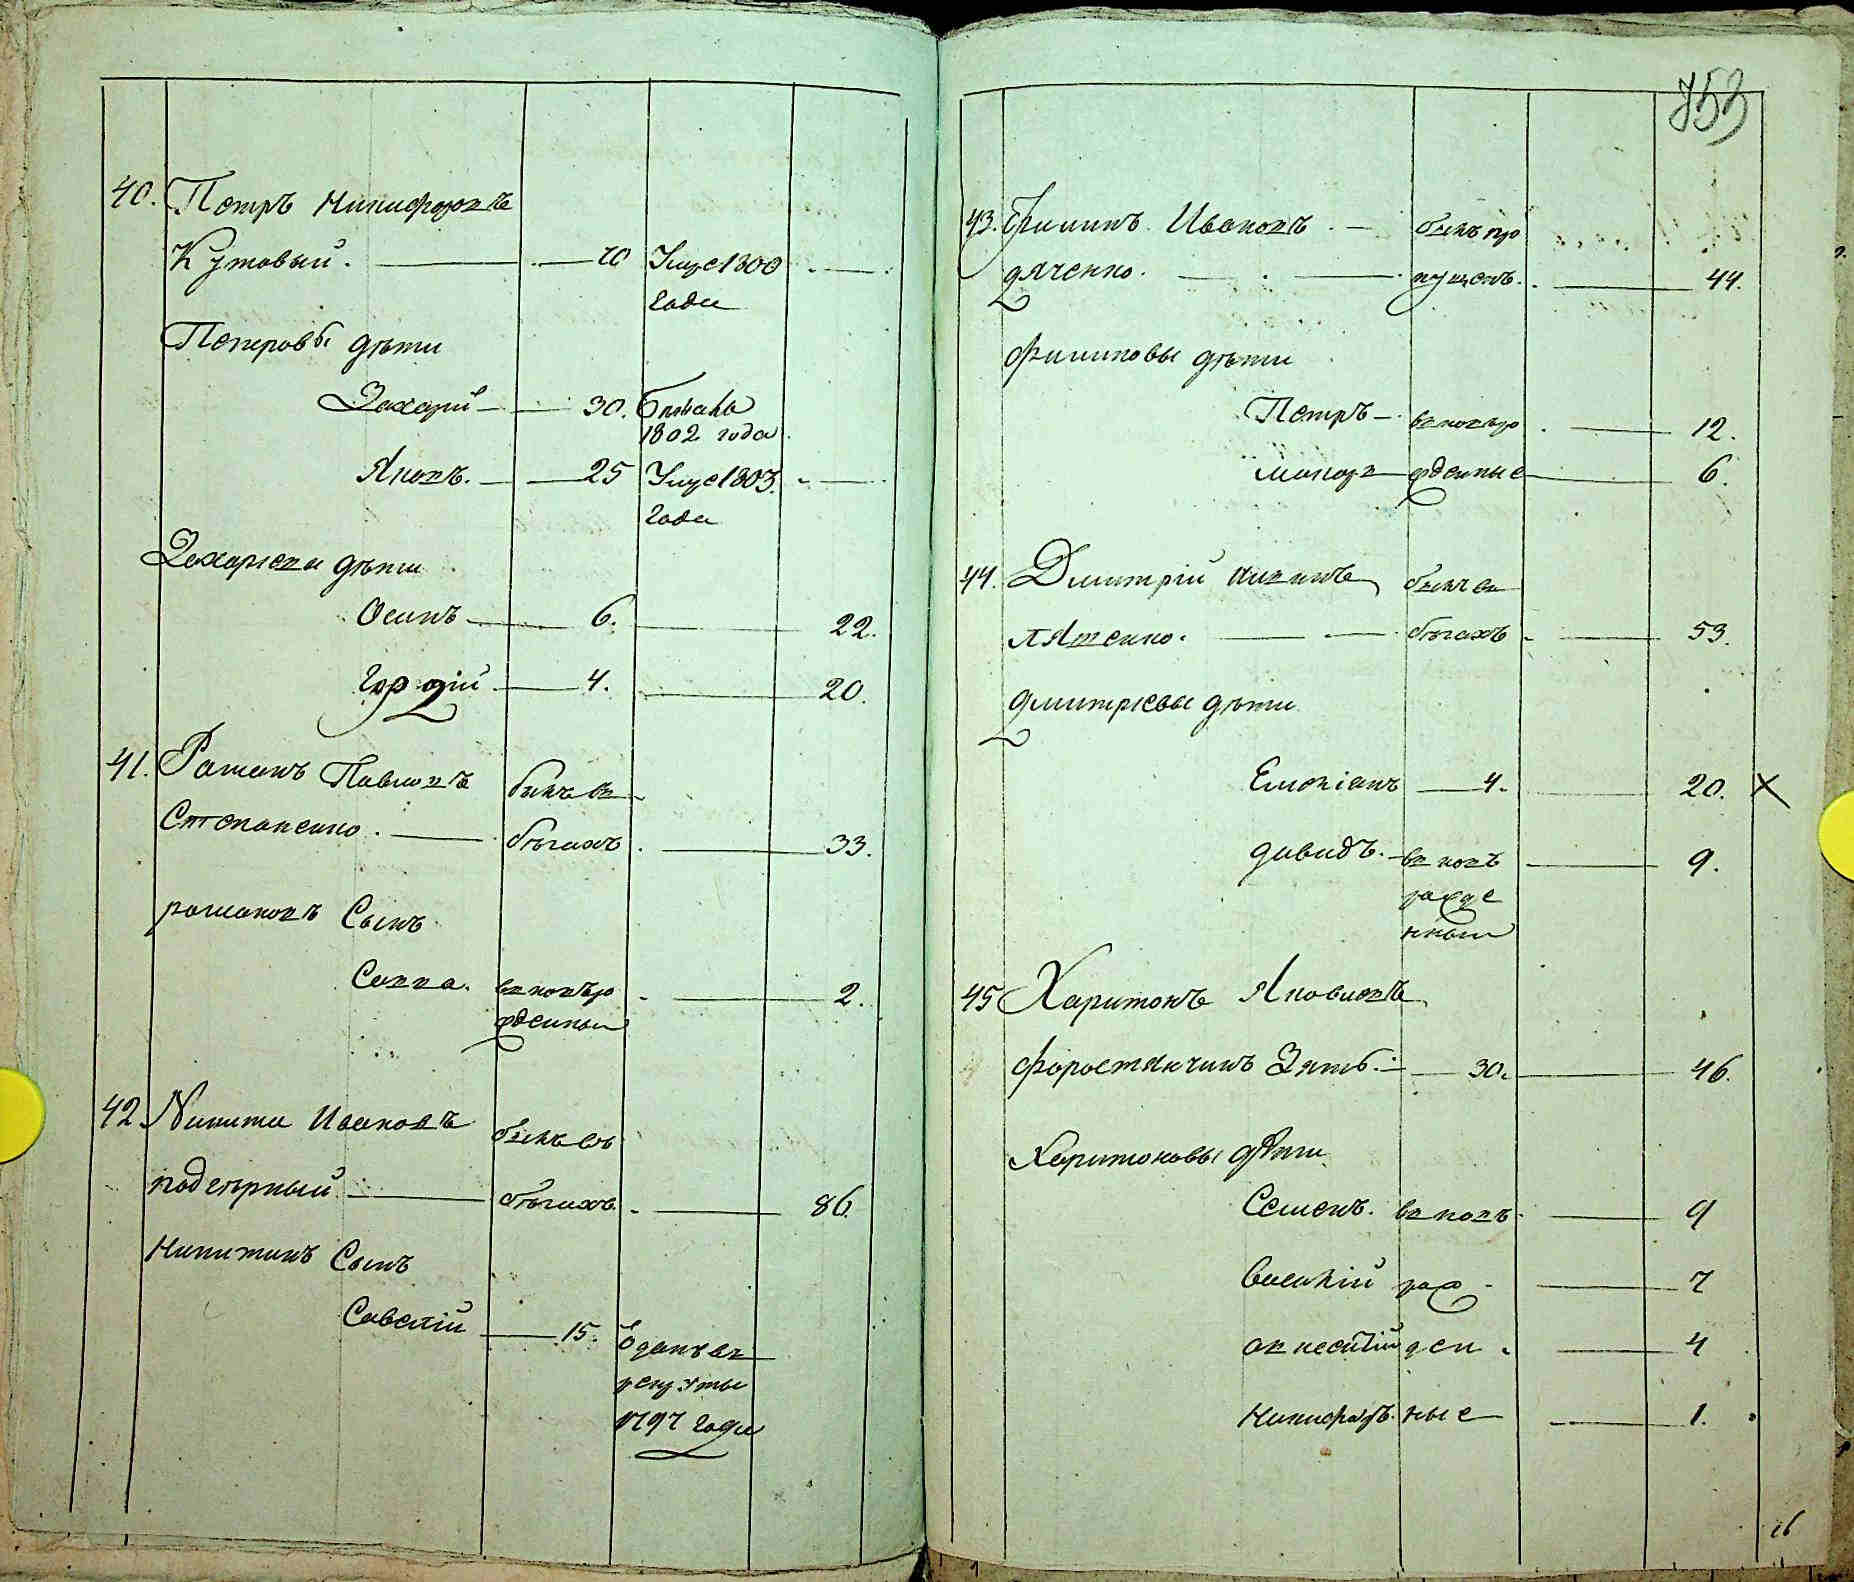 40. Петръ Никифоровъ
Кутовый. 70 Умре 1800
года
Петровы дѣти
Захарій 30. Бѣжалъ
1802 года
Яковъ. 25 Умре 1803.
года
Захариевы дѣти
Осипъ 6. 22.
Гордій 4. 20.
41. Романъ Павловъ былъ въ
Степаненко. бѣгахъ. 33.
романовъ Сынъ
Савва. вновь ро 2.
жденный
42. Никита Ивановъ былъ въ
подгорный бѣгахъ. 86.
Никитинъ Сынъ
Савелій 15. Отданъ въ
рекруты
1797 года
753
43. Филипъ Ивановъ. былъ про
дяченко. пущенъ. 44.
Филиповы дѣти
Петръ вновь ро 12.
жденные 6.
44. Димитрій былъ въ
бѣгахъ 53.
дмитриевы дѣти
Емелианъ 4. 20. X
давидъ. вновь 9.
рожде
нный
45 Харитонъ Яковлевъ
Зять 30. 46.
Харитоновы дѣти
Семенъ. вновь 9
Василій рож 7
ден 4
Никифоръ. ные 1.
16